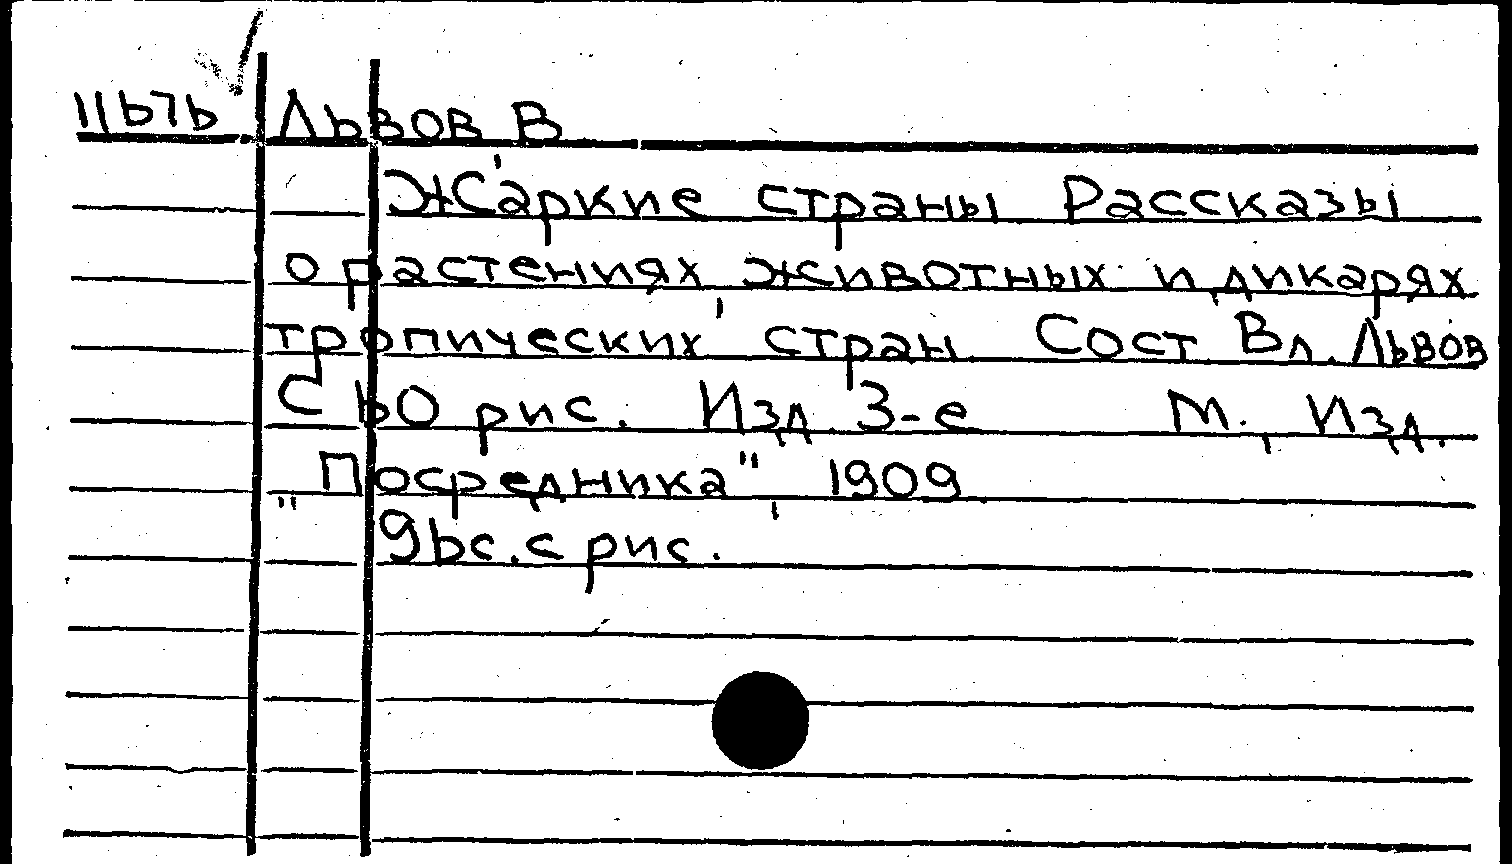 11676 Львов В
Жаркие страны Рассказы
о растениях, животных и дикарях
тропических стран. Сост. Вл. Львов
С 60 рис. Изд. 3-е М., Изд.
"Посредника", 1909
96 с. с рис.